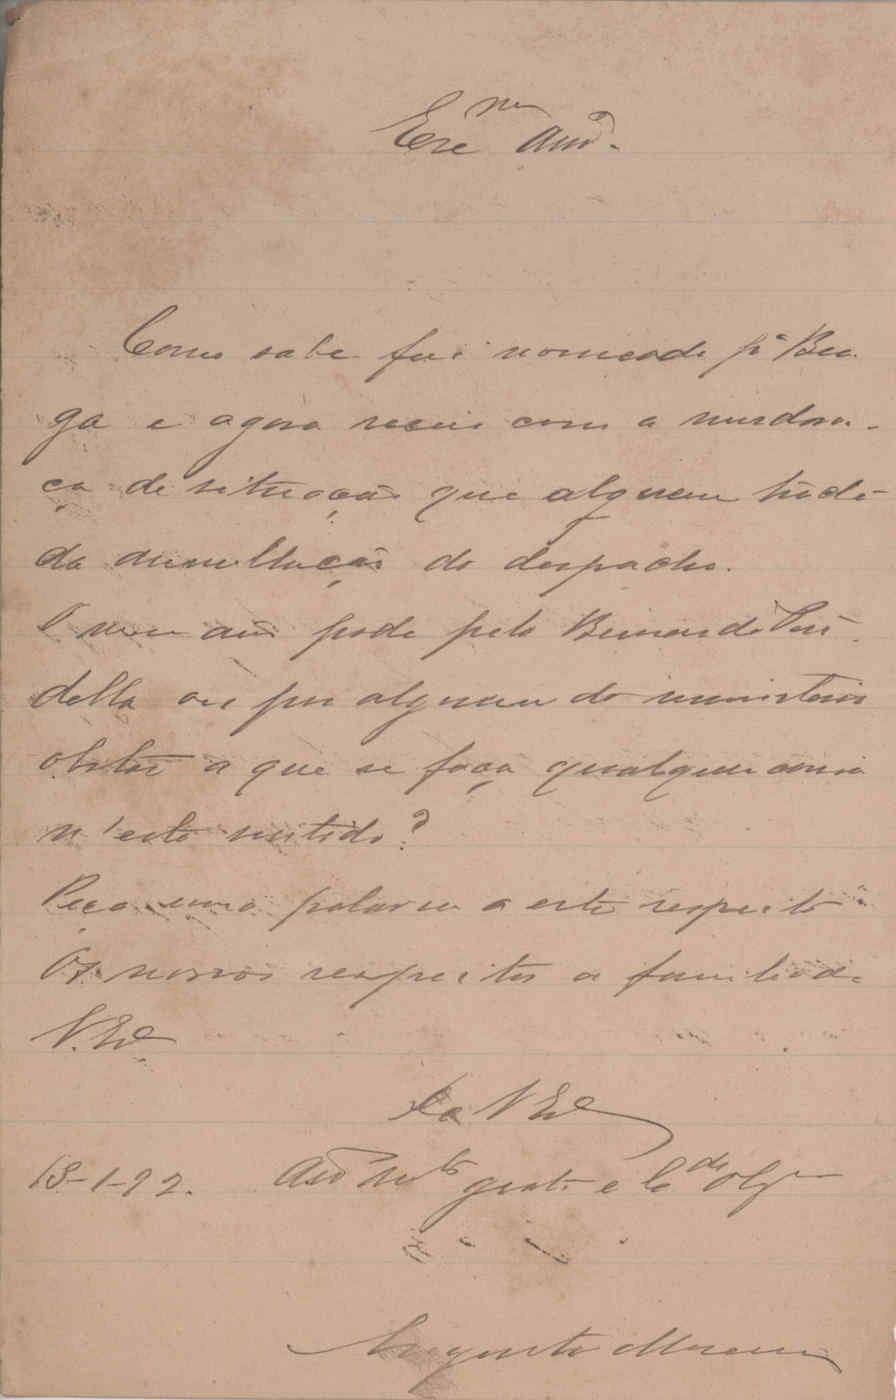 Exmo Amo.
Como sabe fui nomeado pa Bra
ga e agora receio com a mudan-
ça de situação que alguem
da annullação do despacho.
O meu amo pode pelo Bernardo Pin
della ou por alguem do ministerio
obstar a que se faça qualquer cousa
n'este sentido?
Peço uma palavra a este respeito
Os nossos respeitos a familia de
V. Exa.
De V Exa
13-1-92. Amo Mto grato e Cdo Obgo
Augusto